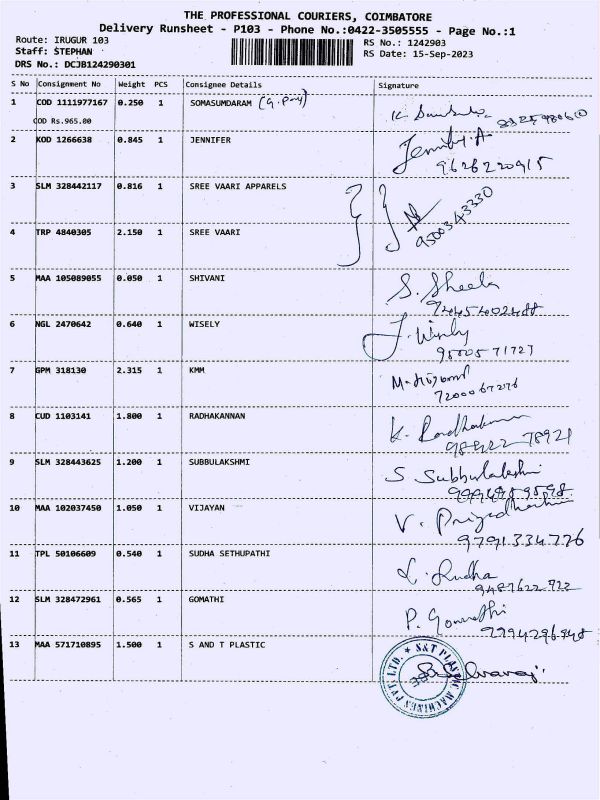 THE PROFESSIONAL COURIERS, COIMBATORE
Delivery Runsheet - P103 - Phone No.:0422-3505555 - Page No.:1
Route: IRUGUR 103 RS No.: 1242903
Staff: STEPHAN RS Date: 15-Sep-2023
DRS No.: DCJB124290301
S No Consignment No Weight PCS Consignee Details Signature
1 COD 1111977167 0.250 1 SOMASUMDARAM (G.Pay)
COD Rs.965.00
2 KOD 1266638 0.845 1 JENNIFER Jennifer.A
9626220915
3 SLM 328442117 0.816 1 SREE VAARI APPARELS
9500343330
4 TRP 4840305 2.150 1 SREE VAARI
5 MAA 105089055 0.050 1 SHIVANI S. Sheela
6 NGL 2470642 0.640 1 WISELY J. Wisely
9500571727
7 GPM 318130 2.315 1 KMM
7200067276
8 CUD 1103141 1.800 1 RADHAKANNAN K. Radhakannan
78921
9 SLM 328443625 1.200 1 SUBBULAKSHMI S Subbulakshmi
10 MAA 102037450 1.050 1 VIJAYAN V. Priyadharshini
9791334776
11 TPL 50106609 0.540 1 SUDHA SETHUPATHI Sudha
9487622722
12 SLM 328472961 0.565 1 GOMATHI P. Gomathi
9994296948
13 MAA 571710895 1.500 1 S AND T PLASTIC
S&T PLASTIC MACHINES PVT. LTD.